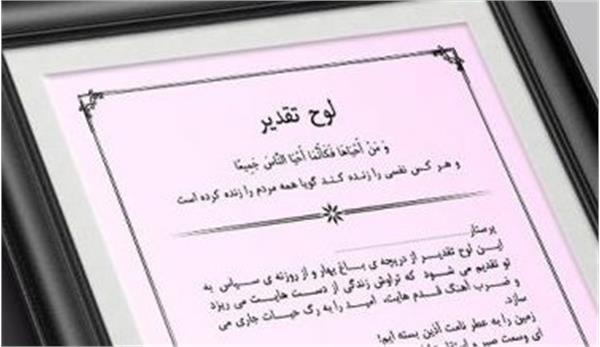 لوح تقدیر
وَ مَنْ أَحْیَاهَا فَکَأَنَّمَا أَحْیَا النَّاسَ جَمِیعًا
و هر کس نفسی را زنده کند گویا همه مردم را زنده کرده است
پرستار
این لوح تقدیر از دریچه ی باغ بهار و از روزنه ی سپاس به
تو تقدیم می شود که تراوش زندگی از دست هایت می ریزد
و ضرب آهنگ قدم هایت، امید را به رگ حیات جاری می
سازد.
زمین را به عطر نامت آذین بسته ایم!
ای وسعت صبر و